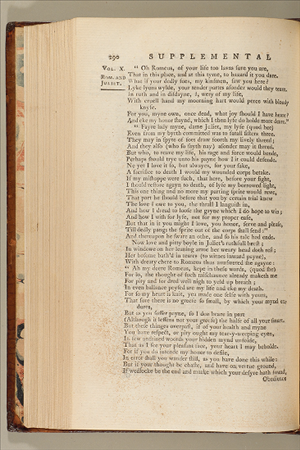 290 SUPPLEMENTAL
VOL. X.
ROM. AND
JULIET.
" Oh Romeus, of your life too lavas sure you are,
That in this place, and at this tyme, to hasard it you dare.
What if your dedly foes, my kinsmen, saw you here?
Lyke lyons wylde, your tender partes asonder would they teare.
In ruth and in disdayne, I, wery of my life,
With cruell hand my moorning hart would perce with bloudy
knyfe.
For you, myne own, once dead, what joy should I have heare?
And eke my honor staynd, which I then lyfe do holde more deare."
" Fayre lady myne, dame Juliet, my lyfe (quod hee)
Even from my byrth committed was to fatall sisters three.
They may in spyte of foes draw foorth my lively threed;
And they also (who so sayth nay) asonder may it shreed.
But who, to reave my life, his rage and force would bende,
Perhaps should trye unto his payne how I it could defende.
Ne yet I love it so, but alwayes, for your sake,
A sacrifice to death I would my wounded corps betake.
If my mishappe were such, that here, before your sight,
I should restore agayn to death, of lyfe my borrowed light,
This one thing and no more my parting sprite would rewe,
That part he should before that you by certain trial knew
The love I owe to you, the thrall I languish in,
And how I dread to loose the gayne which I do hope to win;
And how I wish for lyfe, not for my proper ease,
But that in it you might I love, you honor, serve and please,
Till dedly pangs the sprite out of the corps shall send:"
And thereupon he sware an othe, and so his tale had ende.
Now love and pitty boyle in Juliet's ruthfull brest;
In windowe on her leaning arme her weary head doth rest;
Her bosome bath'd in teares (to witnes inward payne),
With dreary chere to Romeus thus aunswered she agayne:
" Ah my deere Romeus, kepe in these words, (quod she)
For lo, the thought of such mischaunce already maketh me
For pity and for dred well nigh to yeld up breath;
In even ballance peysed are my life and eke my death.
For so my heart is knit, yea, made one selfe with yours,
That sure there is no greefe so small, by which your mynd en-
dures,
But as you suffer payne, so I doe beare in part
(Although it lessens not your greefe) the halfe of all your smart.
But these thinges overpast, if of your health and myne
You have respect, or pity ought my tear-y-weeping eyen,
In few unfained woords your hidden mynd unfolde,
That as I see your pleasant face, your heart I may beholde.
For if you do intende my honor to defile,
In error shall you wander still, as you have done this whilé:
But if your thought be chaste, and have on vertue ground,
If wedlocke be the end and marke which your desyre hath found,
Obedience